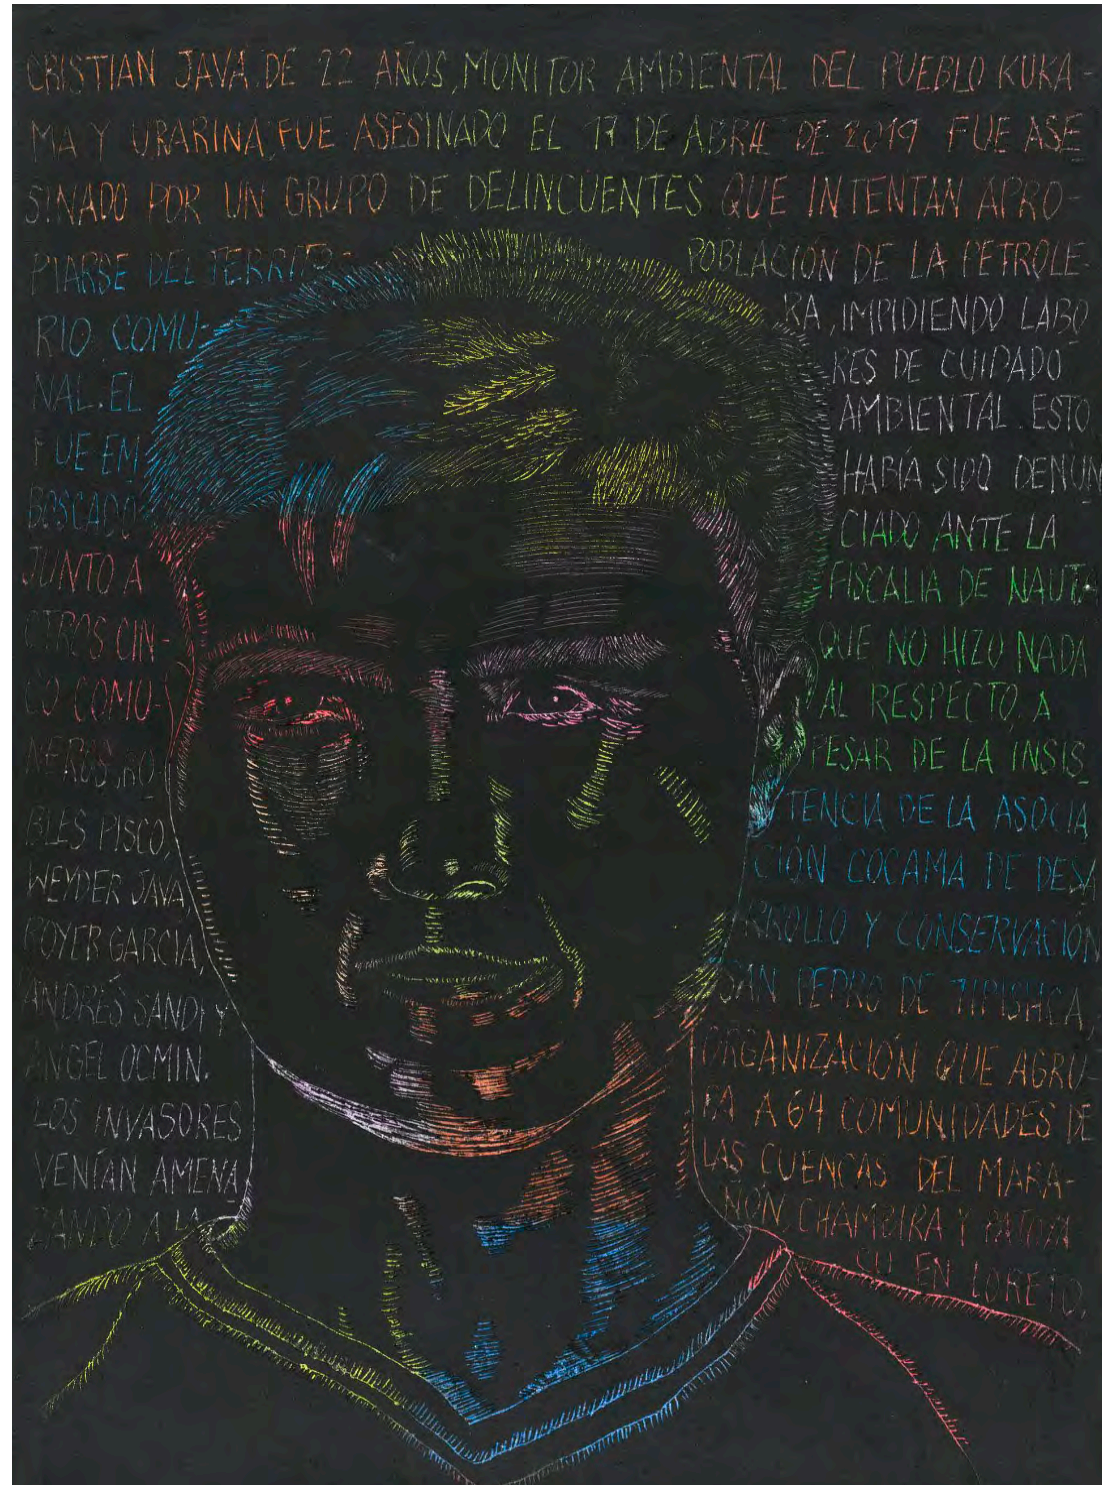 CRISTIAN JAVA, DE 22 AÑOS, MONITOR AMBIENTAL DEL PUEBLO KUKA-
MA Y URARINA, FUE ASESINADO EL 17 DE ABRIL DE 2019 FUE ASE
SINADO POR UN GRUPO DE DELINCUENTES QUE INTENTAN APRO-
PIARSE DEL TERRITO-
RIO COMU-
NAL. EL
FUE EM
BOSCADO
JUNTO A
OTROS CIN-
CO COMU-
NEROS, RO
BLES PISCO,
WEYDER JAVA,
ROYER GARCIA,
ANDRÉS SANDI Y
ANGEL OCMIN.
LOS INVASORES
VENÍAN AMENA
ZANDO A LA
POBLACIÓN DE LA PETROLE-
RA, IMPIDIENDO LABO
RES DE CUIDADO
AMBIENTAL. ESTO
HABÍA SIDO DENUN
CIADO ANTE LA
FISCALIA DE NAUTA
QUE NO HIZO NADA
AL RESPECTO, A
PESAR DE LA INSIS
TENCIA DE LA ASOCIA
CIÓN COCAMA DE DESA
RROLLO Y CONSERVACIÓN
SAN PEDRO DE TIPISHCA,
ORGANIZACIÓN QUE AGRU-
PA A 64 COMUNIDADES DE
LAS CUENCAS DEL MARA-
ÑÓN, CHAMBIRA Y PATOYA
CU EN LORETO.